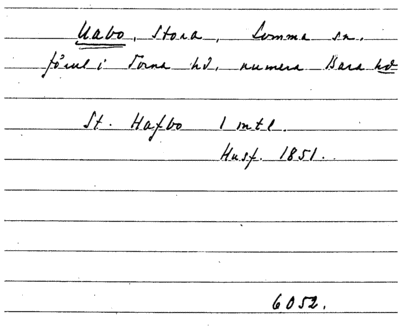 Uabo, Stora, Lomma sn.
förut i Torna hd, numera Bara hd
St. Hafbo 1 mtl.
Husf. 1851.
6052.